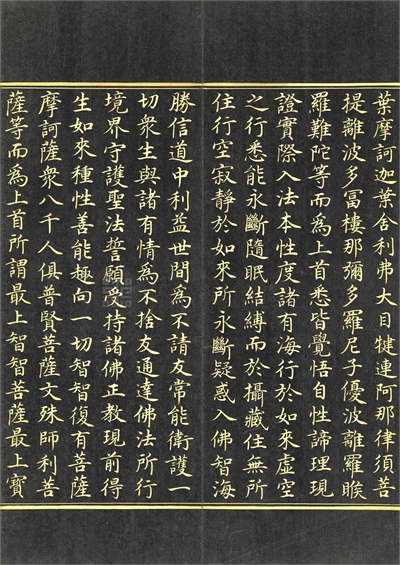 葉摩訶迦葉舍利弗大目犍連阿那律須菩
提離波多冨樓那彌多羅尼子優波離羅睺
羅難陀等而為上首悉皆覺悟自性諦理現
證實際入法本性度諸有海行於如來虛空
之行悉能永斷隨眠結縛而於攝藏住無所
住行空寂靜於如來所永斷疑惑入佛智海
勝信道中利益世間為不請友常能衛護一
切衆生與諸有情為不捨友通達佛法所行
境界守護聖法誓願受持諸佛正教現前得
生如來種性善能趣向一切智智復有菩薩
摩訶薩衆八千人俱普賢菩薩文殊師利菩
薩等而為上首所謂最上智智菩薩最上寶